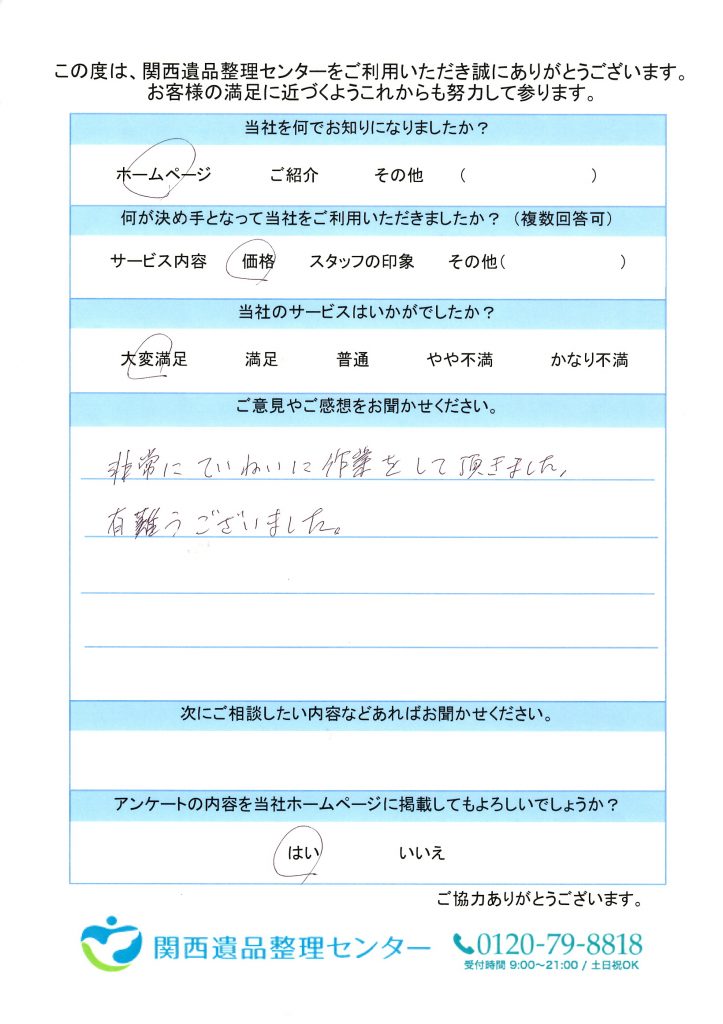 この度は、関西遺品整理センターをご利用いただき誠にありがとうございます。
お客様の満足に近づくようこれからも努力して参ります。
当社を何でお知りになりましたか？
ホームページ ご紹介 その他 （ ）
何が決め手となって当社をご利用いただきましたか？（複数回答可）
サービス内容 価格 スタッフの印象 その他（ ）
当社のサービスはいかがでしたか？
大変満足 満足 普通 やや不満 かなり不満
ご意見やご感想をお聞かせください。
非常にていねいに作業をして頂きました。
有難うございました。
次にご相談したい内容などあればお聞かせください。
アンケートの内容を当社ホームページに掲載してもよろしいでしょうか？
はい いいえ
ご協力ありがとうございます。
関西遺品整理センター 0120-79-8818
受付時間 9:00～21:00 / 土日祝OK